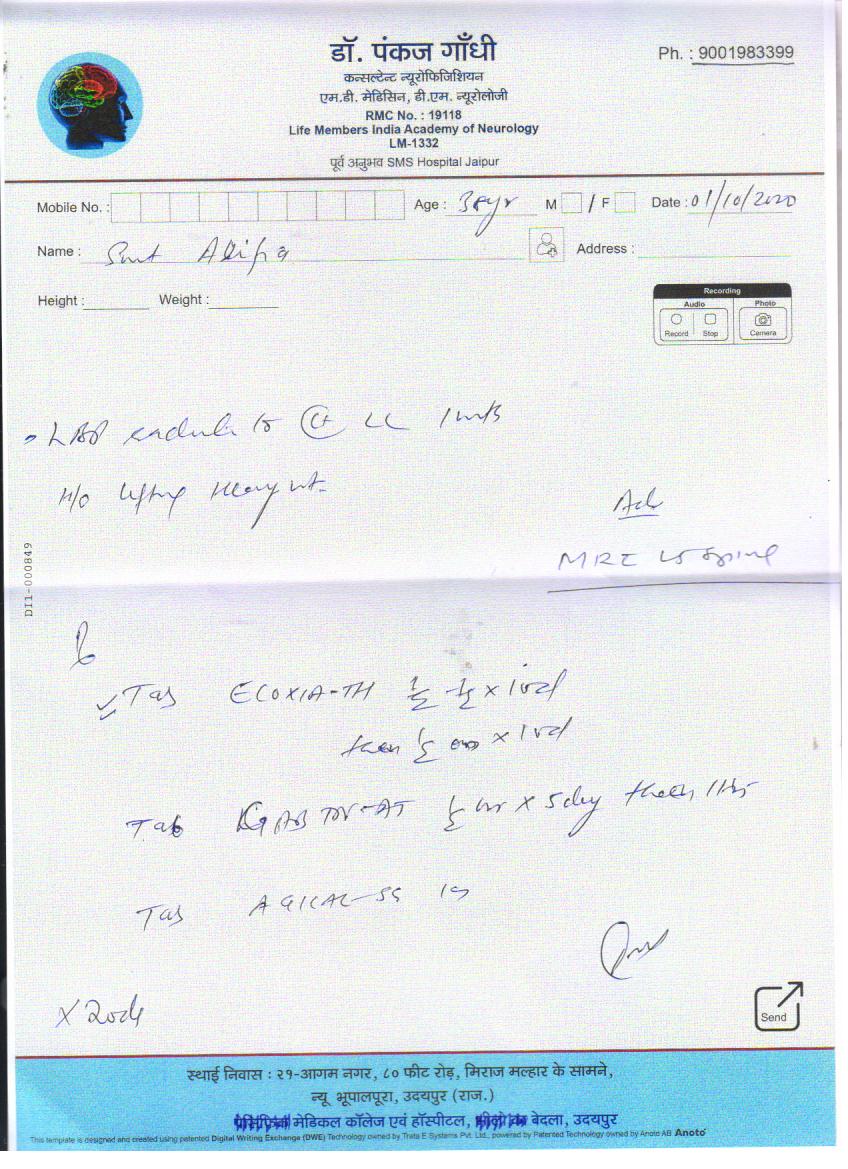 डॉ. पंकज गाँधी
Ph. : 9001983399
कन्सल्टेन्ट न्यूरोफिजिशियन
एम.डी. मेडिसिन, डी.एम. न्यूरोलोजी
RMC No. : 19118
Life Members India Academy of Neurology
LM-1332
पूर्व अनुभव SMS Hospital Jaipur
Mobile No. : Age : 38yr M / F Date : 01/10/2020
Name : Smt Address :
Height : Weight :
Recording
Audio Photo
Record Stop Camera
LBP to LL
H/O lifting Heavy wt.
Adv
MRI LS Spine
DI1-000849
Tab ECOXIA-TH x 10d
then x 10d
Tab x 5day then
Tab
x 20d
Send
स्थाई निवास : २१-आगम नगर, ८० फीट रोड़, मिराज मल्हार के सामने,
न्यू भूपालपूरा, उदयपुर (राज.)
मेडिकल कॉलेज एवं हॉस्पीटल, बेदला, उदयपुर
This template is designed and created using patented Digital Writing Exchange (DWE) Technology owned by Trata E Systems Pvt. Ltd., powered by Patented Technology owned by Anoto AB Anoto